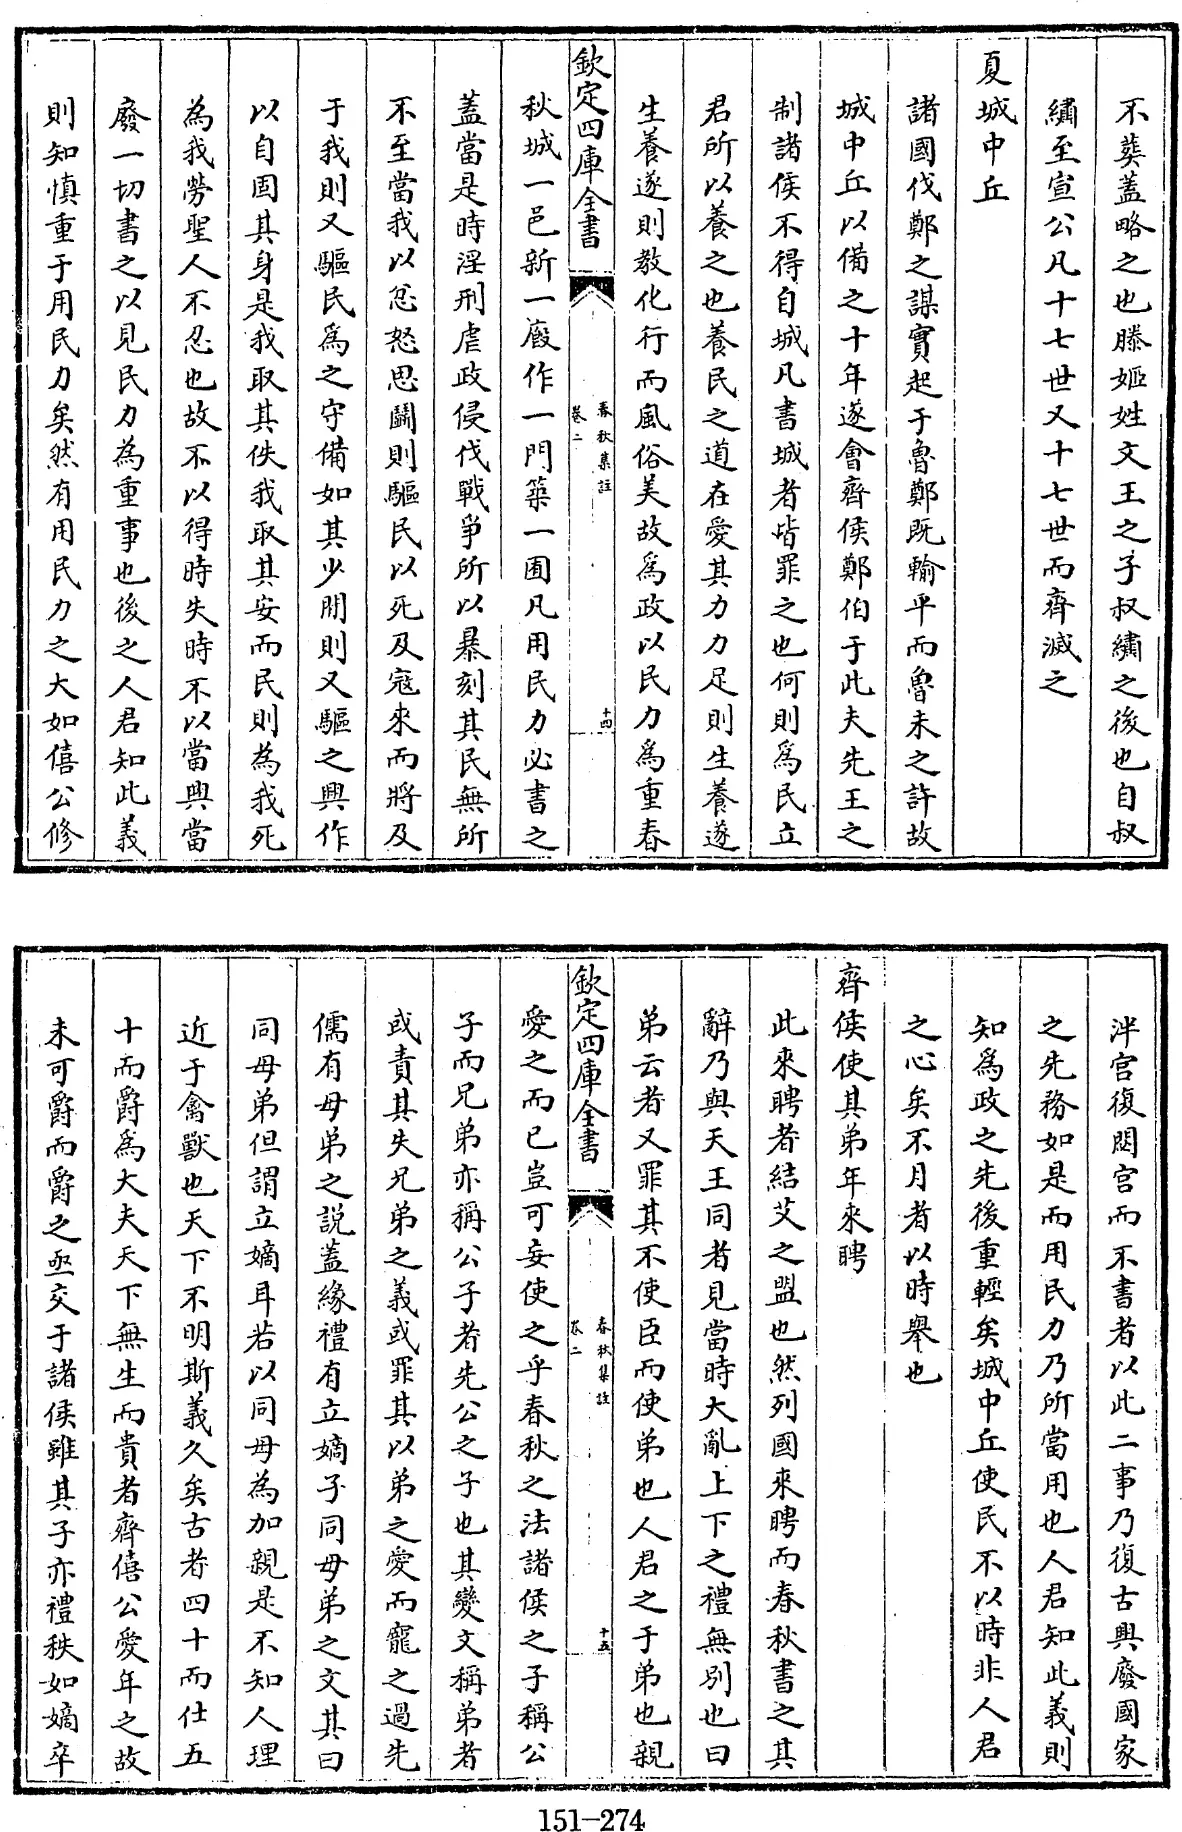 不葬蓋略之也滕姬姓文王之子叔繡之後也自叔
繡至宣公凡十七世又十七世而齊滅之
夏城中丘
諸國伐鄭之謀實起于魯鄭既輸平而魯未之許故
城中丘以備之十年遂會齊侯鄭伯于此夫先王之
制諸侯不得自城凡書城者皆罪之也何則為民立
君所以養之也養民之道在愛其力力足則生養遂
生養遂則教化行而風俗美故為政以民力為重春
欽定四庫全書
春秋集註
卷二
十四
秋城一邑新一廄作一門築一囿凡用民力必書之
蓋當是時淫刑虐政侵伐戰爭所以暴刻其民無所
不至當我以忿怒思鬭則驅民以死及寇來而將及
于我則又驅民為之守備如其少閒則又驅之興作
以自固其身是我取其佚我取其安而民則為我死
為我勞聖人不忍也故不以得時失時不以當興當
廢一切書之以見民力為重事也後之人君知此義
則知慎重于用民力矣然有用民力之大如僖公修
泮宮復閟宮而不書者以此二事乃復古興廢國家
之先務如是而用民力乃所當用也人君知此義則
知為政之先後重輕矣城中丘使民不以時非人君
之心矣不月者以時舉也
齊侯使其弟年來聘
此來聘者結艾之盟也然列國來聘而春秋書之其
辭乃與天王同者見當時大亂上下之禮無別也曰
弟云者又罪其不使臣而使弟也人君之于弟也親
欽定四庫全書
春秋集註
卷二
十五
愛之而已豈可妄使之乎春秋之法諸侯之子稱公
子而兄弟亦稱公子者先公之子也其變文稱弟者
或責其失兄弟之義或罪其以弟之愛而寵之過先
儒有母弟之說蓋緣禮有立嫡子同母弟之文其曰
同母弟但謂立嫡耳若以同母為加親是不知人理
近于禽獸也天下不明斯義久矣古者四十而仕五
十而爵為大夫天下無生而貴者齊僖公愛年之故
未可爵而爵之亟交于諸侯雖其子亦禮秩如嫡卒
151-274